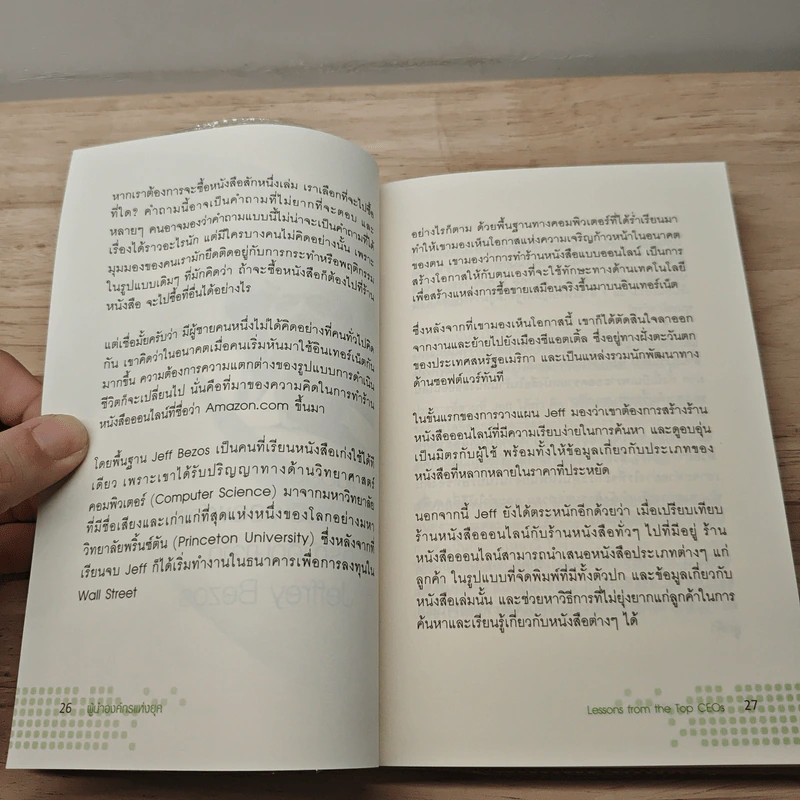 หากเราต้องการจะซื้อหนังสือสักหนึ่งเล่ม เราเลือกที่จะไปซื้อ
ที่ใด? คำถามนี้อาจเป็นคำถามที่ไม่ยากที่จะตอบ และ
หลายๆ คนอาจมองว่าคำถามแบบนี้ไม่น่าจะเป็นคำถามที่ได้
เรื่องได้ราวอะไรนัก แต่มีใครบางคนไม่คิดอย่างนั้น เพราะ
มุมมองของคนเรามักยึดติดอยู่กับการกระทำหรือพฤติกรรม
ในรูปแบบเดิมๆ ที่มักคิดว่า ถ้าจะซื้อหนังสือก็ต้องไปที่ร้าน
หนังสือ จะไปซื้อที่อื่นได้อย่างไร
แต่เชื่อมั้ยครับว่า มีผู้ชายคนหนึ่งไม่ได้คิดอย่างที่คนทั่วไปคิด
กัน เขาคิดว่าในอนาคตเมื่อคนเริ่มหันมาใช้อินเทอร์เน็ตกัน
มากขึ้น ความต้องการความแตกต่างของรูปแบบการดำเนิน
ชีวิตก็จะเปลี่ยนไป นั่นคือที่มาของความคิดในการทำร้าน
หนังสือออนไลน์ที่ชื่อว่า Amazon.com ขึ้นมา
โดยพื้นฐาน Jeff Bezos เป็นคนที่เรียนหนังสือเก่งใช้ได้ที
เดียว เพราะเขาได้รับปริญญาทางด้านวิทยาศาสตร์
คอมพิวเตอร์ (Computer Science) มาจากมหาวิทยาลัย
ที่มีชื่อเสียงและเก่าแก่ที่สุดแห่งหนึ่งของโลกอย่างมหา
วิทยาลัยพริ้นซ์ตัน (Princeton University) ซึ่งหลังจากที่
เรียนจบ Jeff ก็ได้เริ่มทำงานในธนาคารเพื่อการลงทุนใน
Wall Street
26 ผู้นำองค์กรแห่งยุค
อย่างไรก็ตาม ด้วยพื้นฐานทางคอมพิวเตอร์ที่ได้ร่ำเรียนมา
ทำให้เขามองเห็นโอกาสแห่งความเจริญก้าวหน้าในอนาคต
ของตน เขามองว่าการทำร้านหนังสือแบบออนไลน์ เป็นการ
สร้างโอกาสให้กับตนเองที่จะใช้ทักษะทางด้านเทคโนโลยี
เพื่อสร้างแหล่งการซื้อขายเสมือนจริงขึ้นมาบนอินเทอร์เน็ต
ซึ่งหลังจากที่เขามองเห็นโอกาสนี้ เขาก็ได้ตัดสินใจลาออก
จากงานและย้ายไปยังเมืองซีแอตเติ้ล ซึ่งอยู่ทางฝั่งตะวันตก
ของประเทศสหรัฐอเมริกา และเป็นแหล่งรวมนักพัฒนาทาง
ด้านซอฟต์แวร์ทันที
ในขั้นแรกของการวางแผน Jeff มองว่าเขาต้องการสร้างร้าน
หนังสือออนไลน์ที่มีความเรียบง่ายในการค้นหา และดูอบอุ่น
เป็นมิตรกับผู้ใช้ พร้อมทั้งให้ข้อมูลเกี่ยวกับประเภทของ
หนังสือที่หลากหลายในราคาที่ประหยัด
นอกจากนี้ Jeff ยังได้ตระหนักอีกด้วยว่า เมื่อเปรียบเทียบ
ร้านหนังสือออนไลน์กับร้านหนังสือทั่วๆ ไปที่มีอยู่ ร้าน
หนังสือออนไลน์สามารถนำเสนอหนังสือประเภทต่างๆ แก่
ลูกค้า ในรูปแบบที่จัดพิมพ์ที่มีทั้งตัวปก และข้อมูลเกี่ยวกับ
หนังสือเล่มนั้น และช่วยหาวิธีการที่ไม่ยุ่งยากแก่ลูกค้าในการ
ค้นหาและเรียนรู้เกี่ยวกับหนังสือต่างๆ ได้
Lessons from the Top CEOs 27